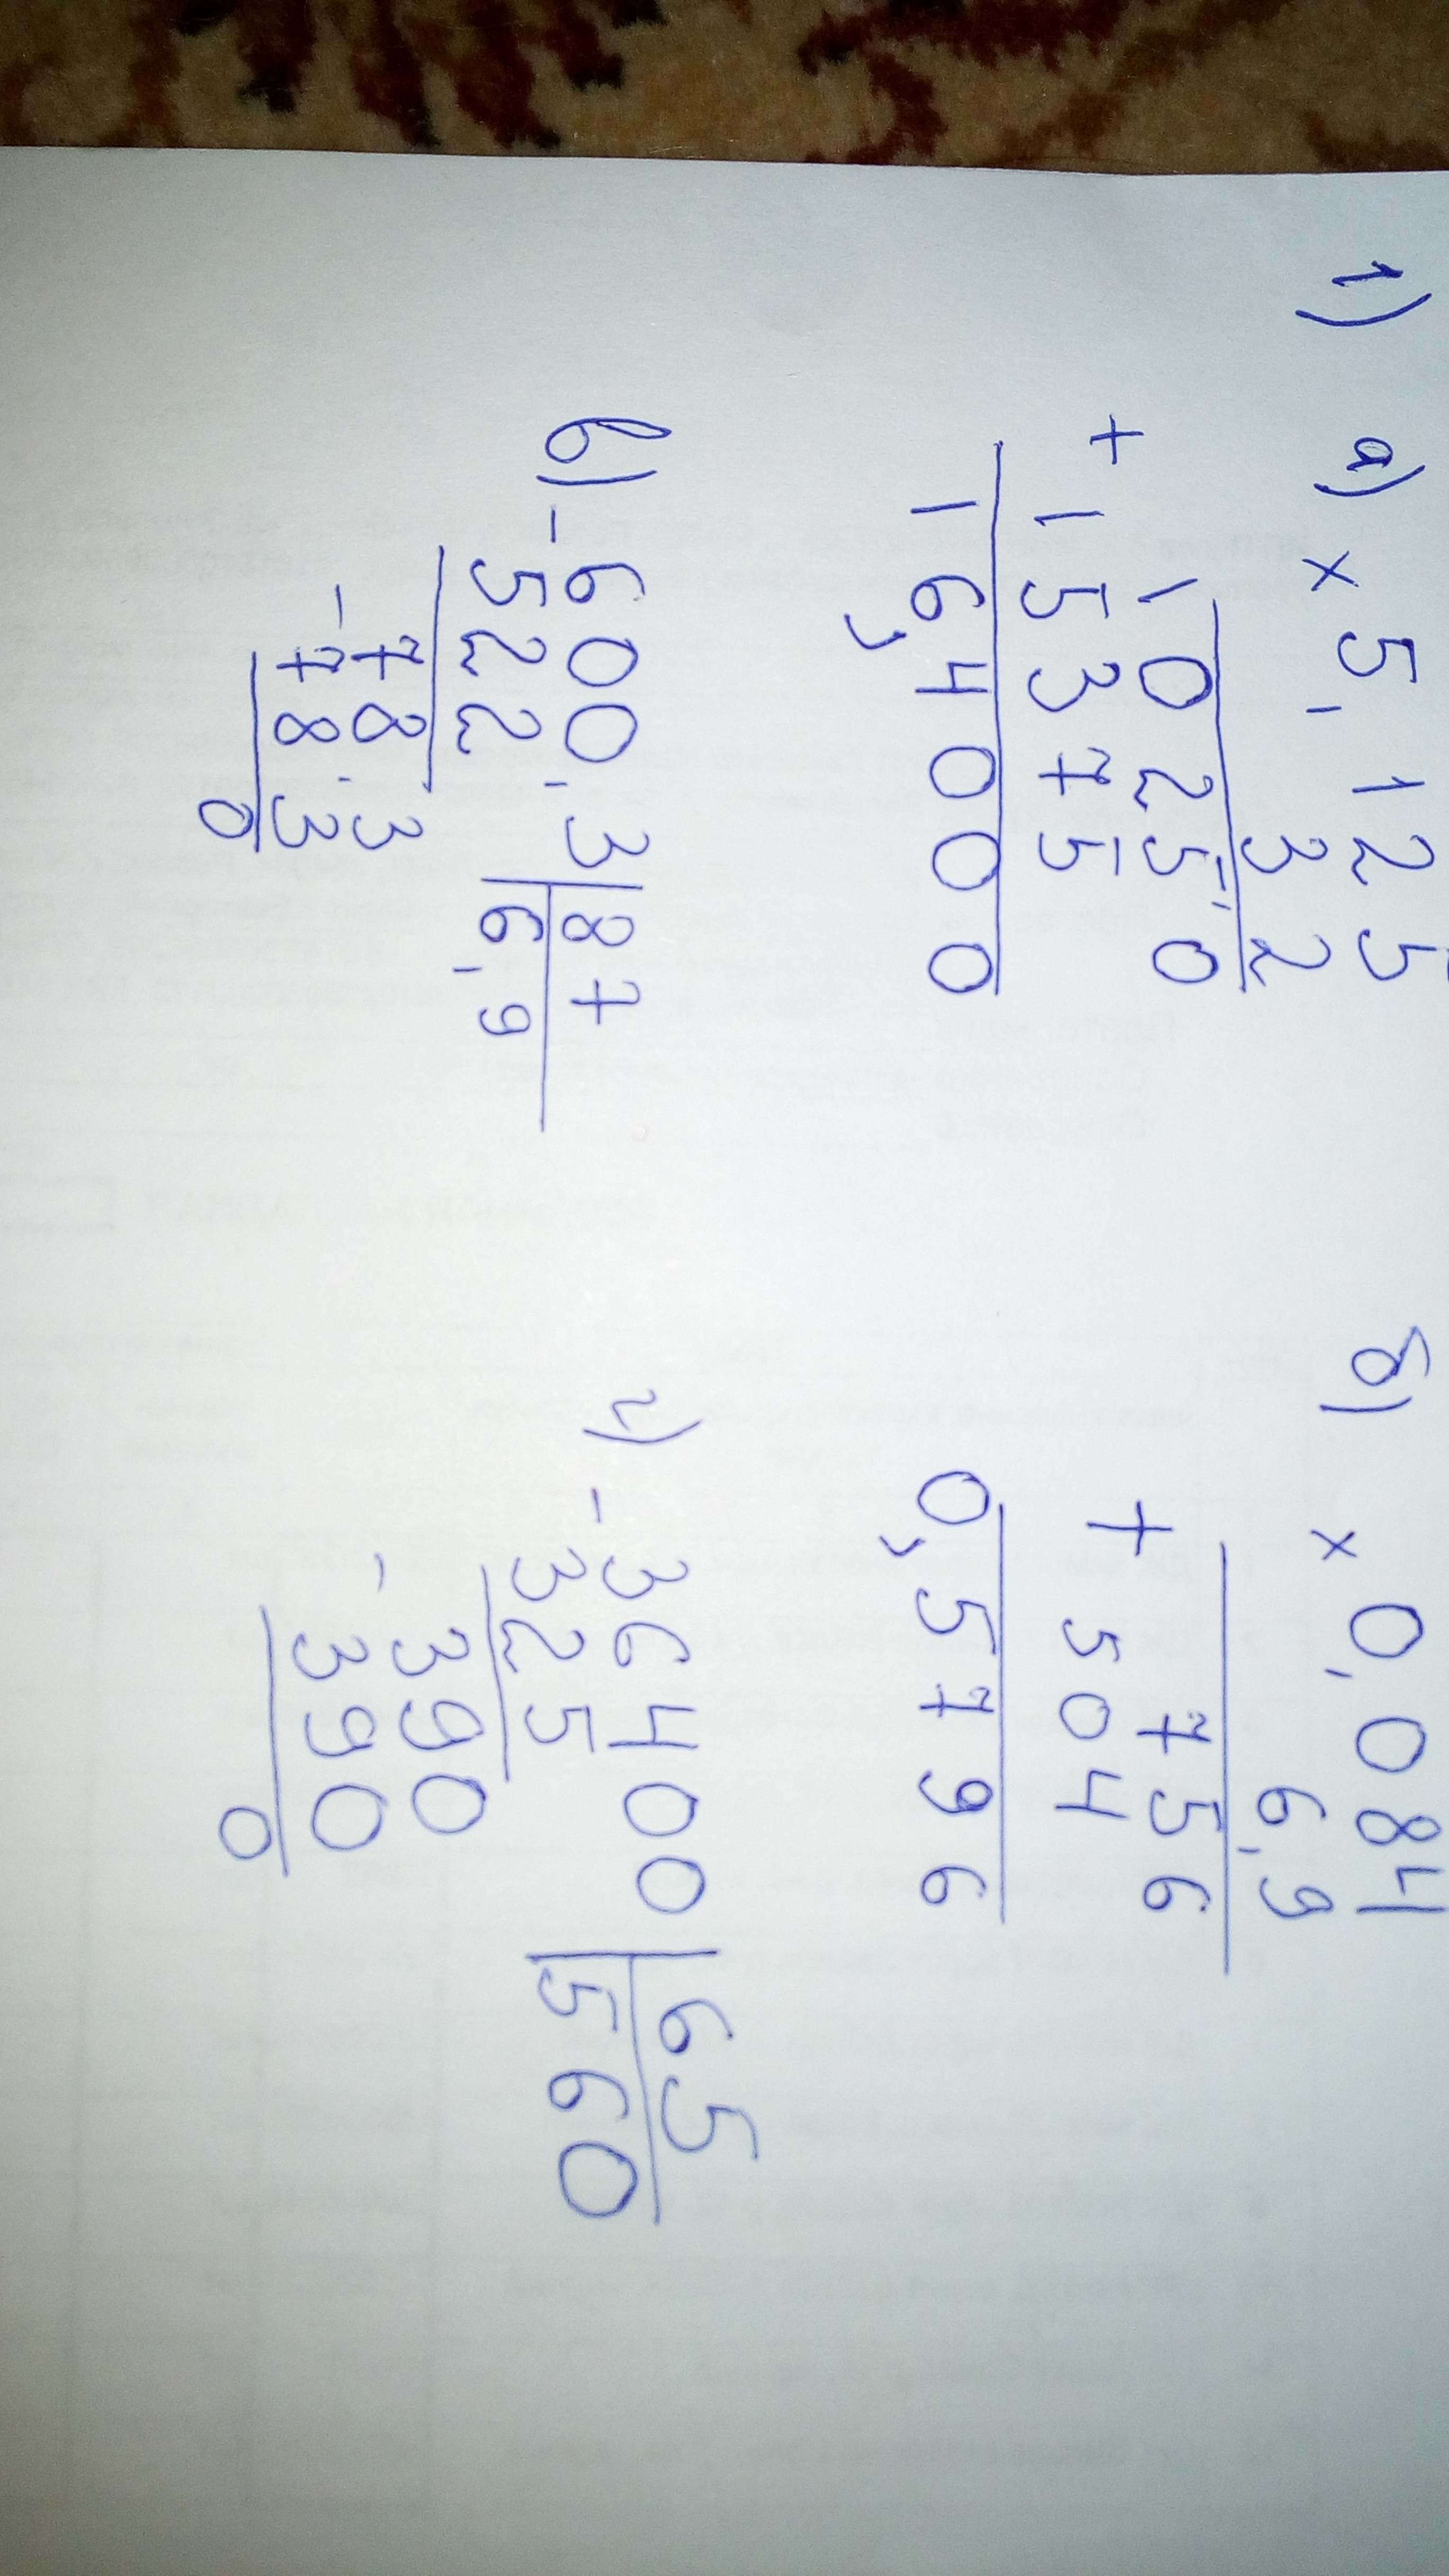 1) а) × 5,125
32
10250
+ 15375
16,4000
б) × 0,084
6,9
756
+ 504
0,5796
в) - 600,3 | 87
522 | 6,9
- 78,3
78 3
0
г) - 36400 | 65
325 | 560
- 390
390
0